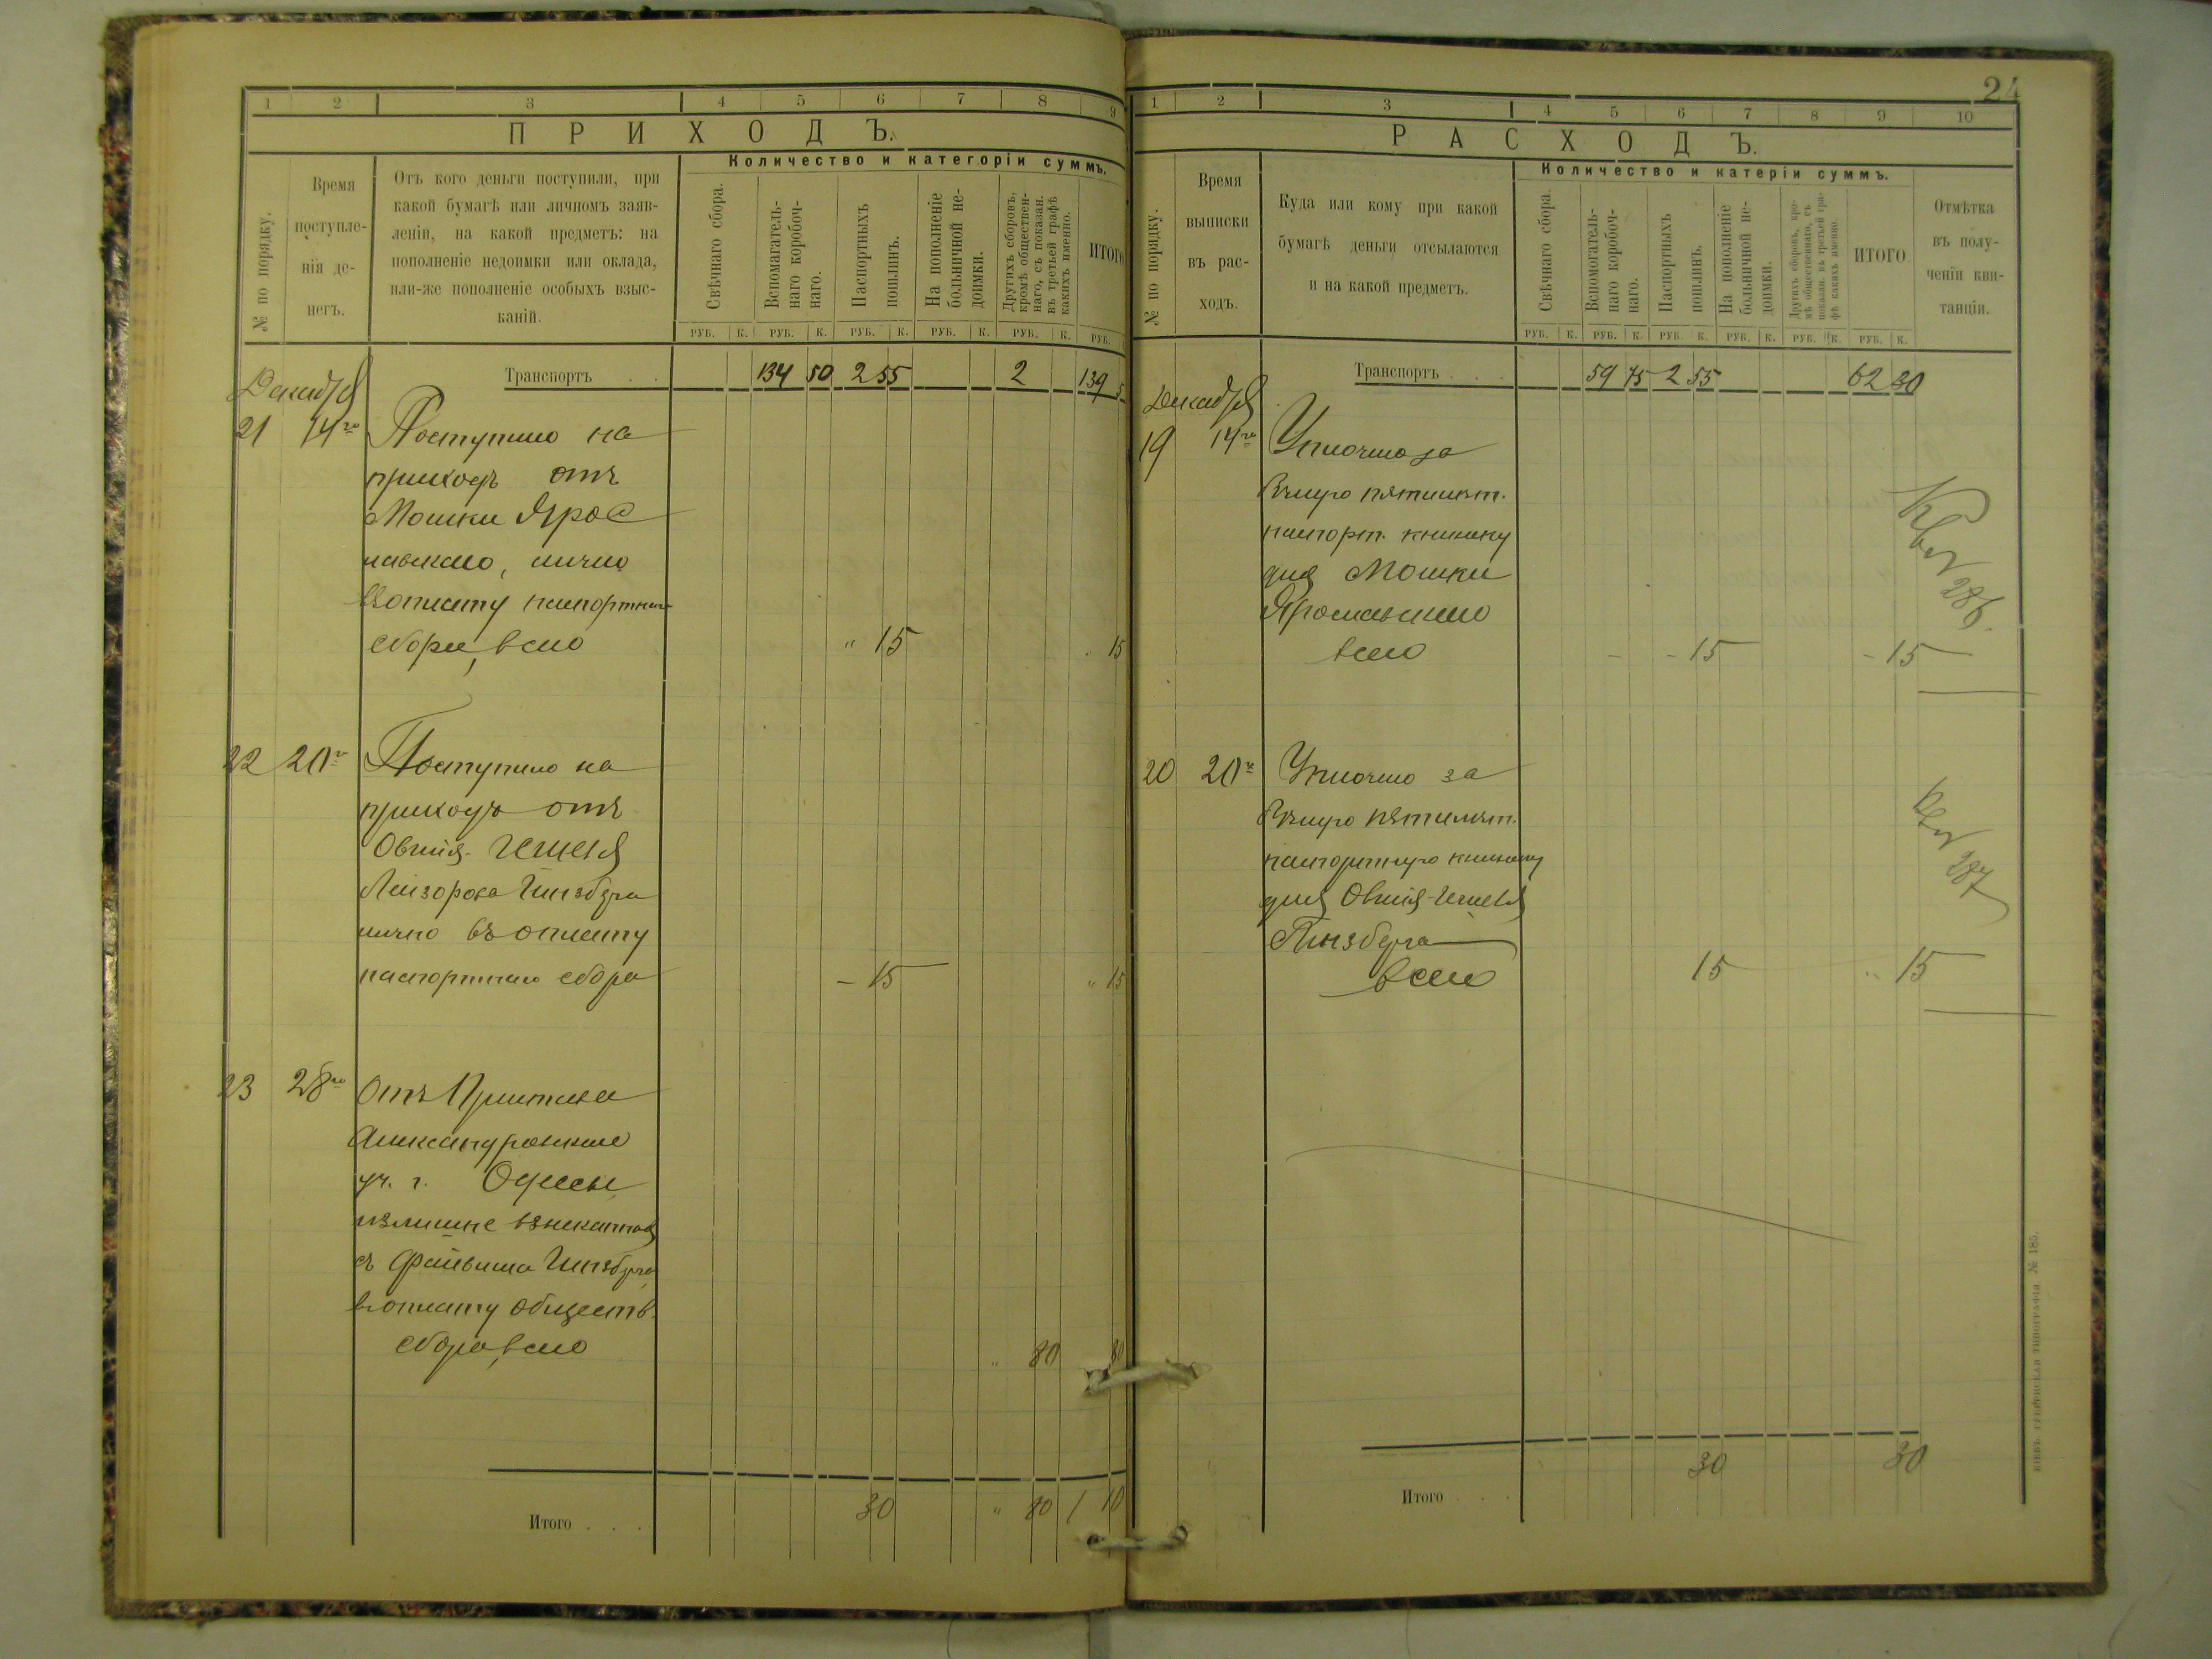 1 2 3 4 5 6 7 8 9
ПРИХОДЪ.
№ по порядку.
Время
поступле-
нія де-
негъ.
Отъ кого деньги поступили, при
какой бумагѣ или личномъ заяв-
леніи, на какой предметъ: на
пополненіе недоимки или оклада,
или-же пополненіе особыхъ взыс-
каній.
Количество и категоріи суммъ.
Свѣчнаго сбора.
Вспомагатель-
наго коробоч-
наго.
Паспортныхъ
пошлинъ.
На пополненіе
больничной не-
доимки.
Другихъ сборовъ,
кромѣ обществен-
наго, съ показан.
въ третьей графѣ
какихъ именно.
ИТОГО
РУБ. К. РУБ. К. РУБ. К. РУБ. К. РУБ. К. РУБ.
Транспортъ . . 134 50 2 55 2 139 5
Декабря
21 14го Поступило на
приходъ отъ
Мошки Ярос
лавскаго, лично
въ оплату паспортнаго
сбора, всего " 15 " 15
22 20го Поступило на
приходъ отъ
Овшія-
Лейзорова Гинзберга
лично въ оплату
паспортнаго сбора — 15 " 15
23 28го Отъ Пристава
Александровскаго
уч. г. Одессы
излишне взысканныя
съ Файвиша Гинзберга
въ оплату обществ.
сбора, всего " 80 80
Итого . . . 30 " 80 1 10
24
1 2 3 4 5 6 7 8 9 10
РАСХОДЪ.
№ по порядку.
Время
выписки
въ рас-
ходъ.
Куда или кому при какой
бумагѣ деньги отсылаются
и на какой предметъ.
Количество и катеріи суммъ.
Свѣчнаго сбора.
Вспомогатель-
наго коробоч-
наго.
Паспортныхъ
пошлинъ.
На пополненіе
больничной не-
доимки.
Другихъ сборовъ, кро-
мѣ общественнаго, съ
показан. въ третьей гра-
фѣ какихъ именно.
ИТОГО
Отмѣтка
въ полу-
ченіи кви-
танціи.
РУБ. К. РУБ. К. РУБ. К. РУБ. К. РУБ. К. РУБ. К.
Транспортъ . . . 59 75 2 55 62 30
Декабря
19 14го Уплочено за
пятилѣт.
паспорт. книжку
для Мошки
Ярославскаго
всего - - 15 - 15
286.
20 20го Уплочено за
пятилѣт.
паспортную книжку
для Овшія-
Гинзберга
всего 15 " 15
287
30 30
Итого . . .
КІЕВЪ. ГУБЕРНСКАЯ ТИПОГРАФІЯ № 185.